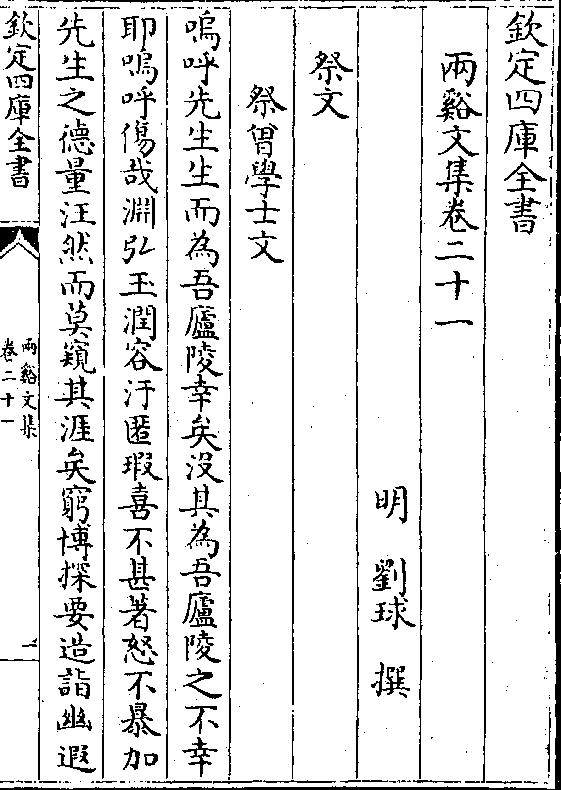 欽定四庫全書
兩谿文集卷二十一
明 劉球 撰
祭文
祭曾學士文
嗚呼先生生而為吾廬陵幸矣沒其為吾廬陵之不幸
耶嗚呼傷哉淵弘玉潤容汙匿瑕喜不甚著怒不暴加
先生之德量汪然而莫窺其涯矣窮博探要造詣幽遐
欽定四庫全書
兩谿文集
卷二十一
一